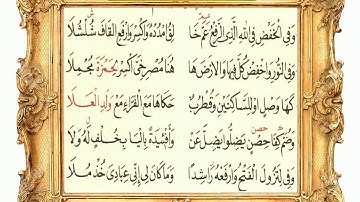 وَفِي الْخَفْضِ فِي اللهِ الَّذِي الرَّفْعُ عَمَّ خَا لِقُ امْدُدْهُ وَاكْسِرْ وَارْفَعِ الْقَافَ شُلْشُلَا
وَفِي النُّورِ وَاخْفِضْ كُلَّ فِيهَا وَالَارْضَ هَا هُنَا مُصْرِخِيَّ اكْسِرْ لِحَمْزَةَ مُجْمِلَا
كَهَا وَصْلٍ اوْ لِلسَّاكِنَيْنِ وَقُطْرُبٌ حَكَاهَا مَعَ الْفَرَّاءِ مَعْ وَلَدِ الْعَلَا
وَضُمَّ كِفَا حِصْنٍ يَضِلُّوا يَضِلَّ عَنْ وَأَفْئِيدَةً بِالْيَا بِخُلْفٍ لَهُ وَلَا
وَفِي لِتَزُولَ الْفَتْحُ وَارْفَعْهُ رَاشِدًا وَمَا كَانَ لِي إِنِّي عِبَادِيَ خُذْ مُلَا